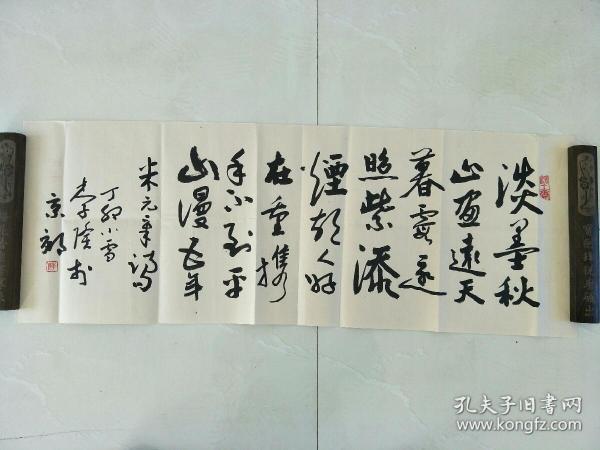 淡墨秋
山画遠天
暮霞還
照紫添
煙故人好
在重攜
手不到平
山漫五年
米元章詩
丁卯小雪
李隆於
京都
孔夫子旧书网
www.kongfz.com